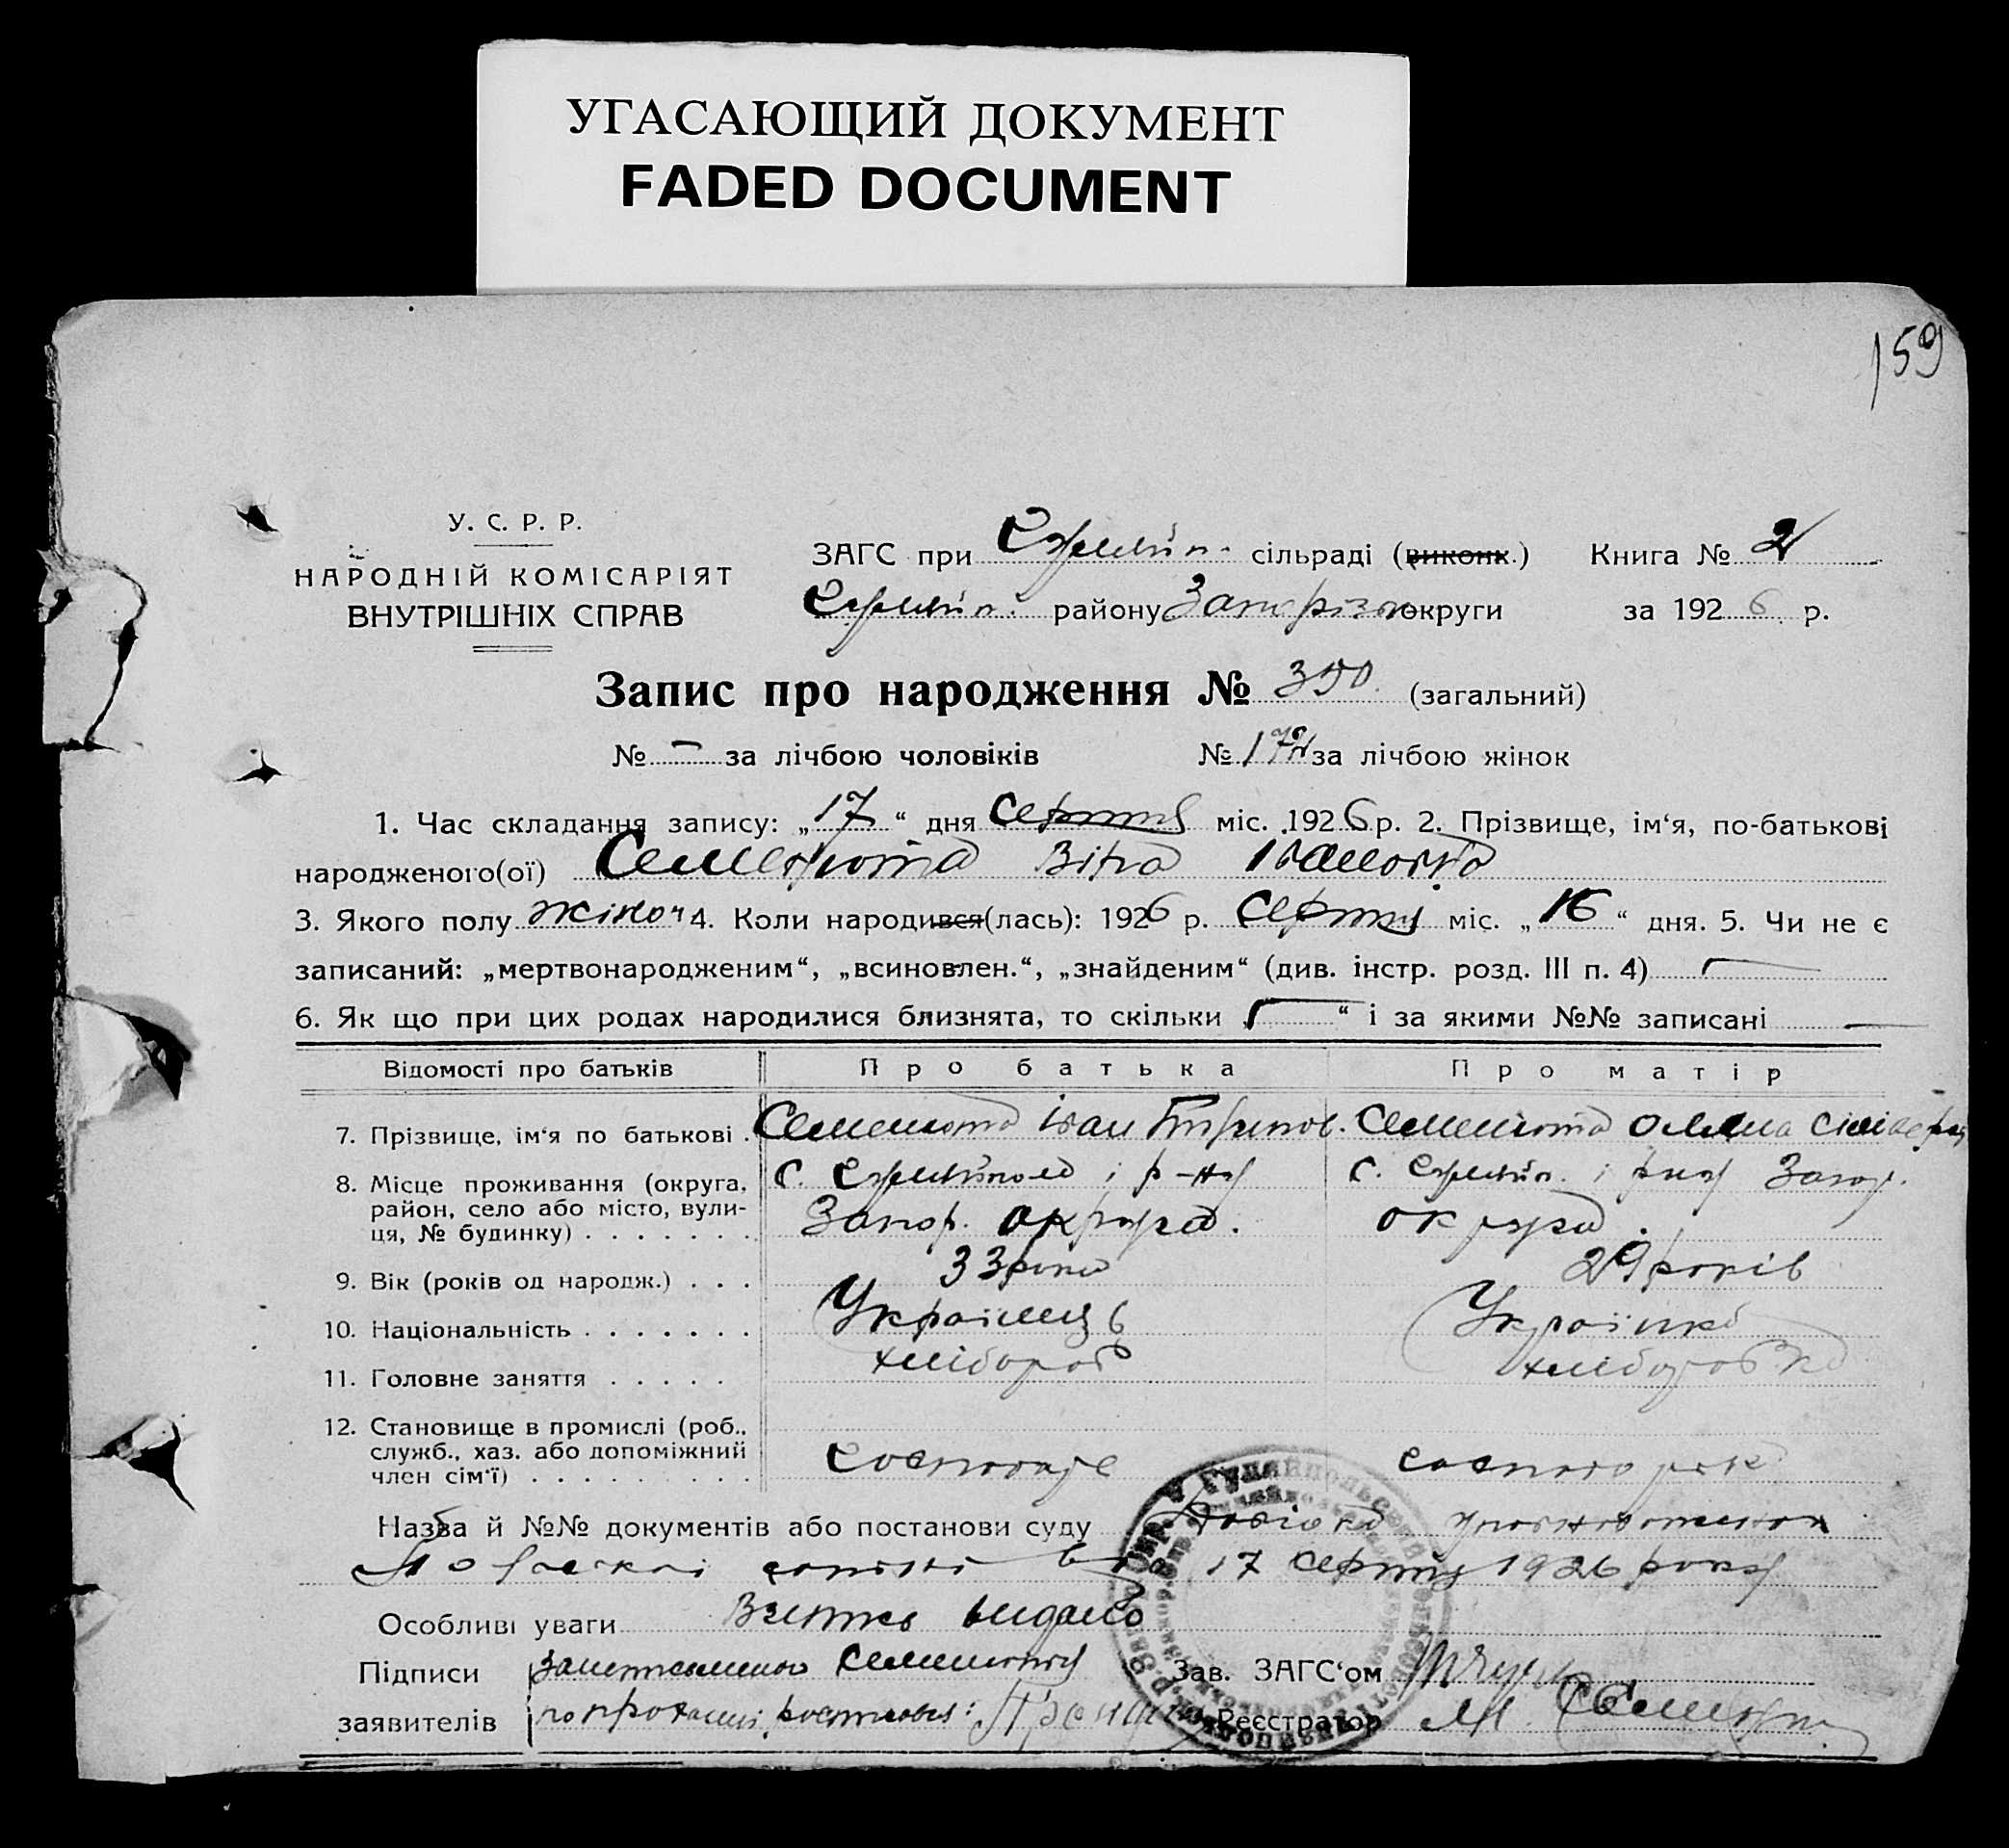 УГАСАЮЩИЙ ДОКУМЕНТ
FADED DOCUMENT
159
У. С. Р. Р.
НАРОДНІЙ КОМІСАРІЯТ
ВНУТРІШНІХ СПРАВ
ЗАГС при Гуляйп. сільраді (виконк.) Книга № 2
Гуляйп. району Запорізьк округи за 1926 р.
Запис про народження № 350. (загальний)
№ – за лічбою чоловіків № 172 за лічбою жінок
1. Час складання запису: „17“ дня серпня міс. 1926 р. 2. Прізвище, ім‘я, по-батькові
народженого(ої) Семенюта Віра Івановна
3. Якого полу жіноч 4. Коли народився(лась): 1926 р. серпня міс. „16“ дня. 5. Чи не є
записаний: „мертвонародженим“, „всиновлен.“, „знайденим“ (див. інстр. розд. III п. 4) —
6. Як що при цих родах народилися близнята, то скільки „—“ і за якими №№ записані —
Відомості про батьків Про батька Про матір
7. Прізвище, ім‘я по батькові . Семенюта Іван Семенюта
8. Місце проживання (округа, район, село або місто, вулиця, № будинку) . . . . . . .
с. Гуляйполе і р-ну
Запор. округа.
с. Гуляйп. і р-ну Запор.
округа.
9. Вік (років од народж.) . . . 33 роки 29 років
10. Національність . . . . . . . Українець Українка
11. Головне заняття . . . . . хлібороб хлиборобка
12. Становище в промислі (роб., служб., хаз. або допоміжний член сім‘ї) . . . . . . . . .
господарь господарка
Назва й №№ документів або постанови суду Довідка уповноваженого
сотні від 17 серпня 1926 року
Особливі уваги Витяг видано
Підписи заявителів
Семенюту
по проханні росписався:
Зав. ЗАГС‘ом
Реєстратор М.